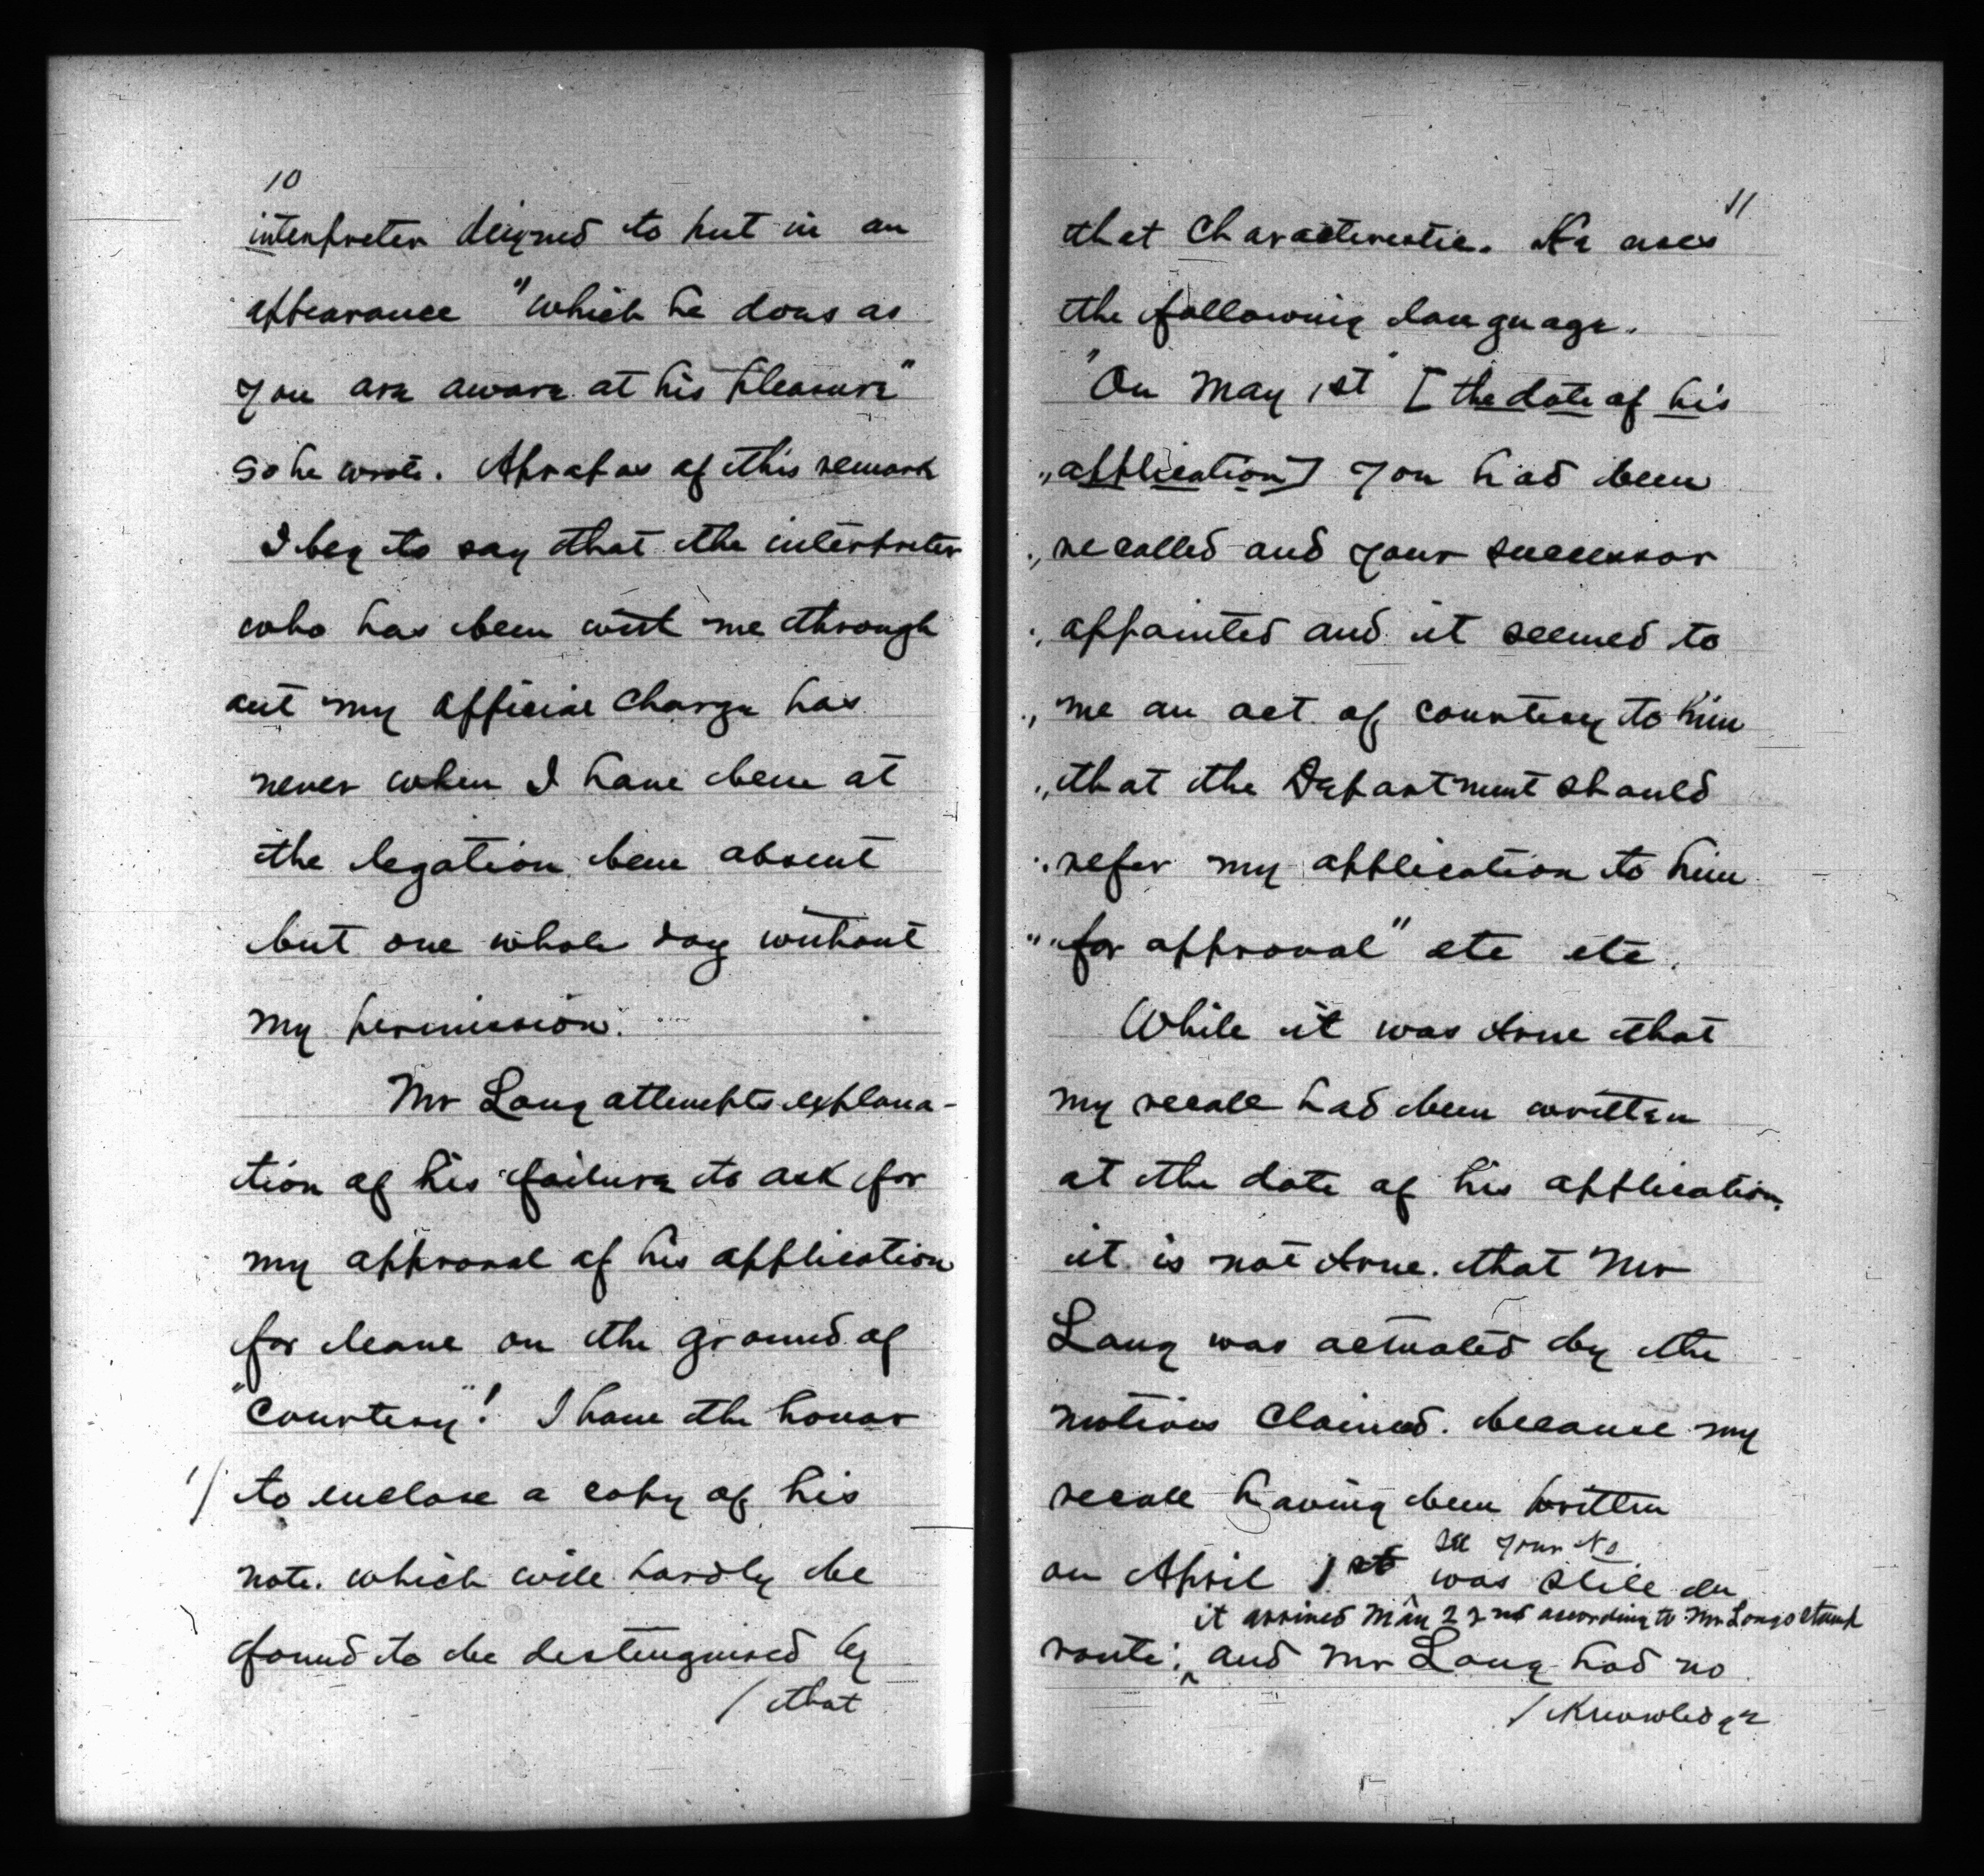 10
interpreter deigned to put in an
appearance "which he does as
you are aware at his pleasure"
so he wrote. Apropos of this remark
I beg to say that the interpreter
who has been with me through
out my official charge has
never when I have been at
the legation been absent
but one whole day without
my permission.
Mr Long attempts explana-
tion of his failure to ask for
my approval of his application
for leave on the ground of
"courtesy"! I have the honor
1/ to enclose a copy of his
note. which will hardly be
found to be destinguised by
/ that
11
that characteristic. He uses
the following language.
"On May 1st" [the date of his
" application] you had been
" recalled and your successor
" appointed and it seemed to
" me an act of courtesy to him
" that the Department should
" refer my application to him
" for approval" etc etc.
While it was true that
my recall had been written
at the date of his application,
it is not true. that Mr
Long was actuated by the
motives claimed. because my
recall having been written
see your No
on April 1st was still en
it arrived May 22nd according to Mr Longs stamp
route; ^ and Mr Long had no
/ knowledge